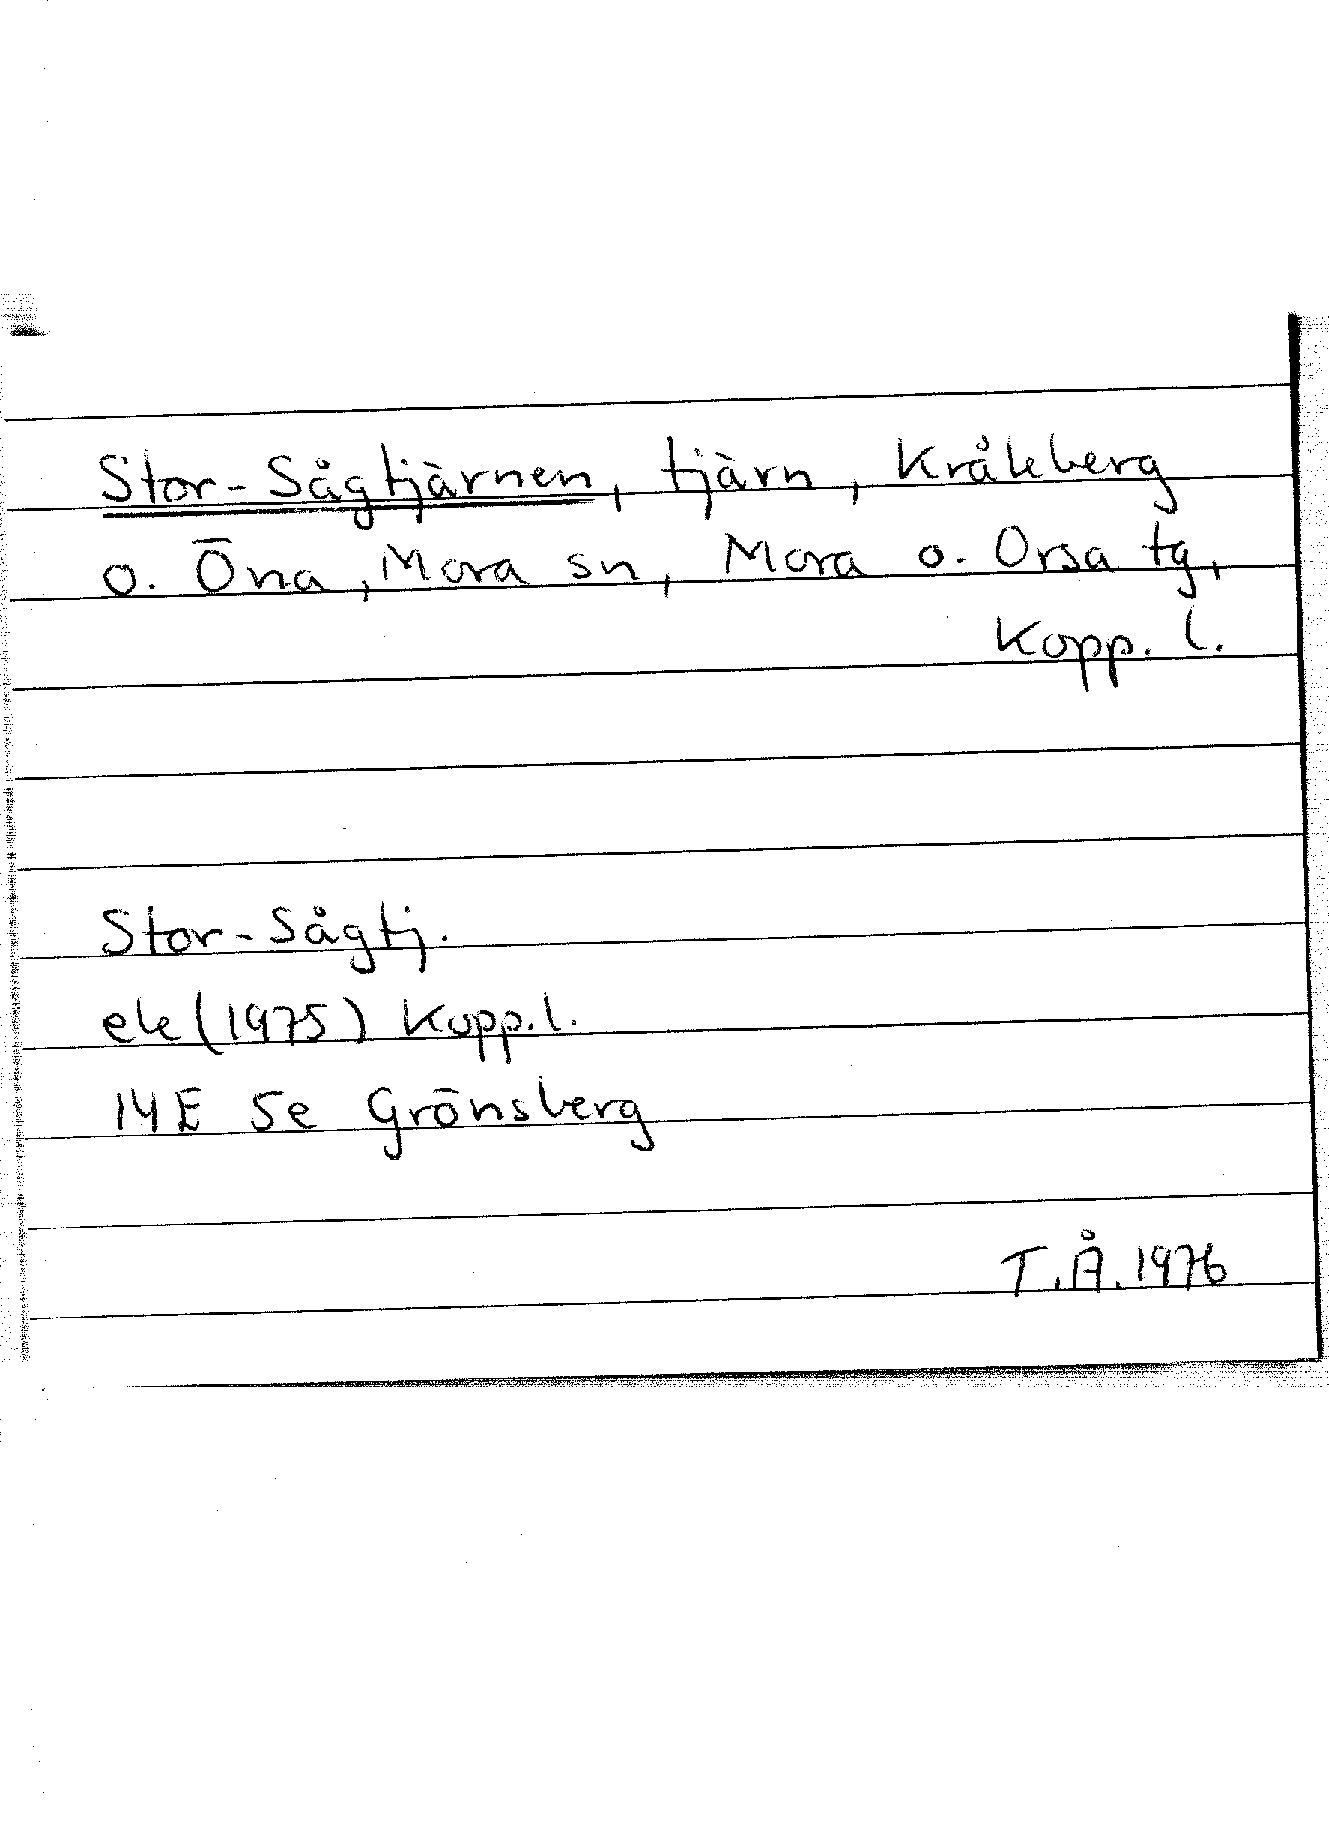 Stor-Sågtjärnen, tjärn, Kråkberg
o. Öna, Mora sn, Mora o. Orsa tg,
Kopp. l.
Stor-Sågtj.
ek (1975) Kopp. l.
14E 5e Grönsberg
T.Å. 1976